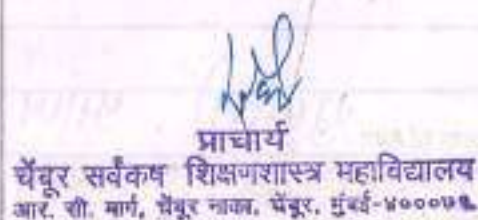 प्राचार्य
चेंबूर सर्वंकष शिक्षणशास्त्र महाविद्यालय
आर. सी. मार्ग, चेंबूर नाका, चेंबूर, मुंबई-४०००७१